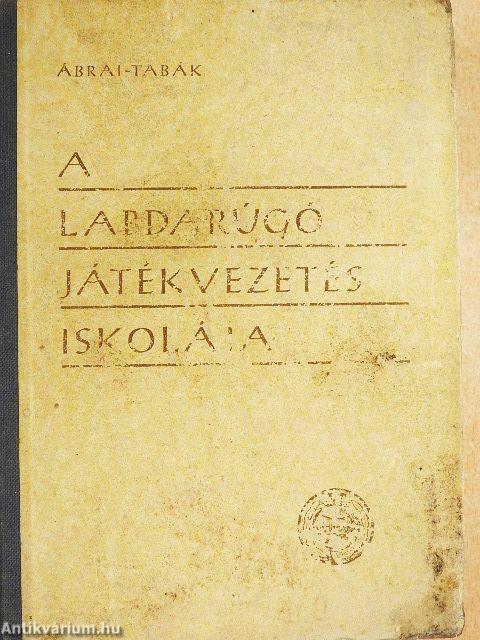 ÁBRAI-TABÁK
A
LABDARÚGÓ
JÁTÉKVEZETÉS
ISKOLÁJA
Antikvárium.hu